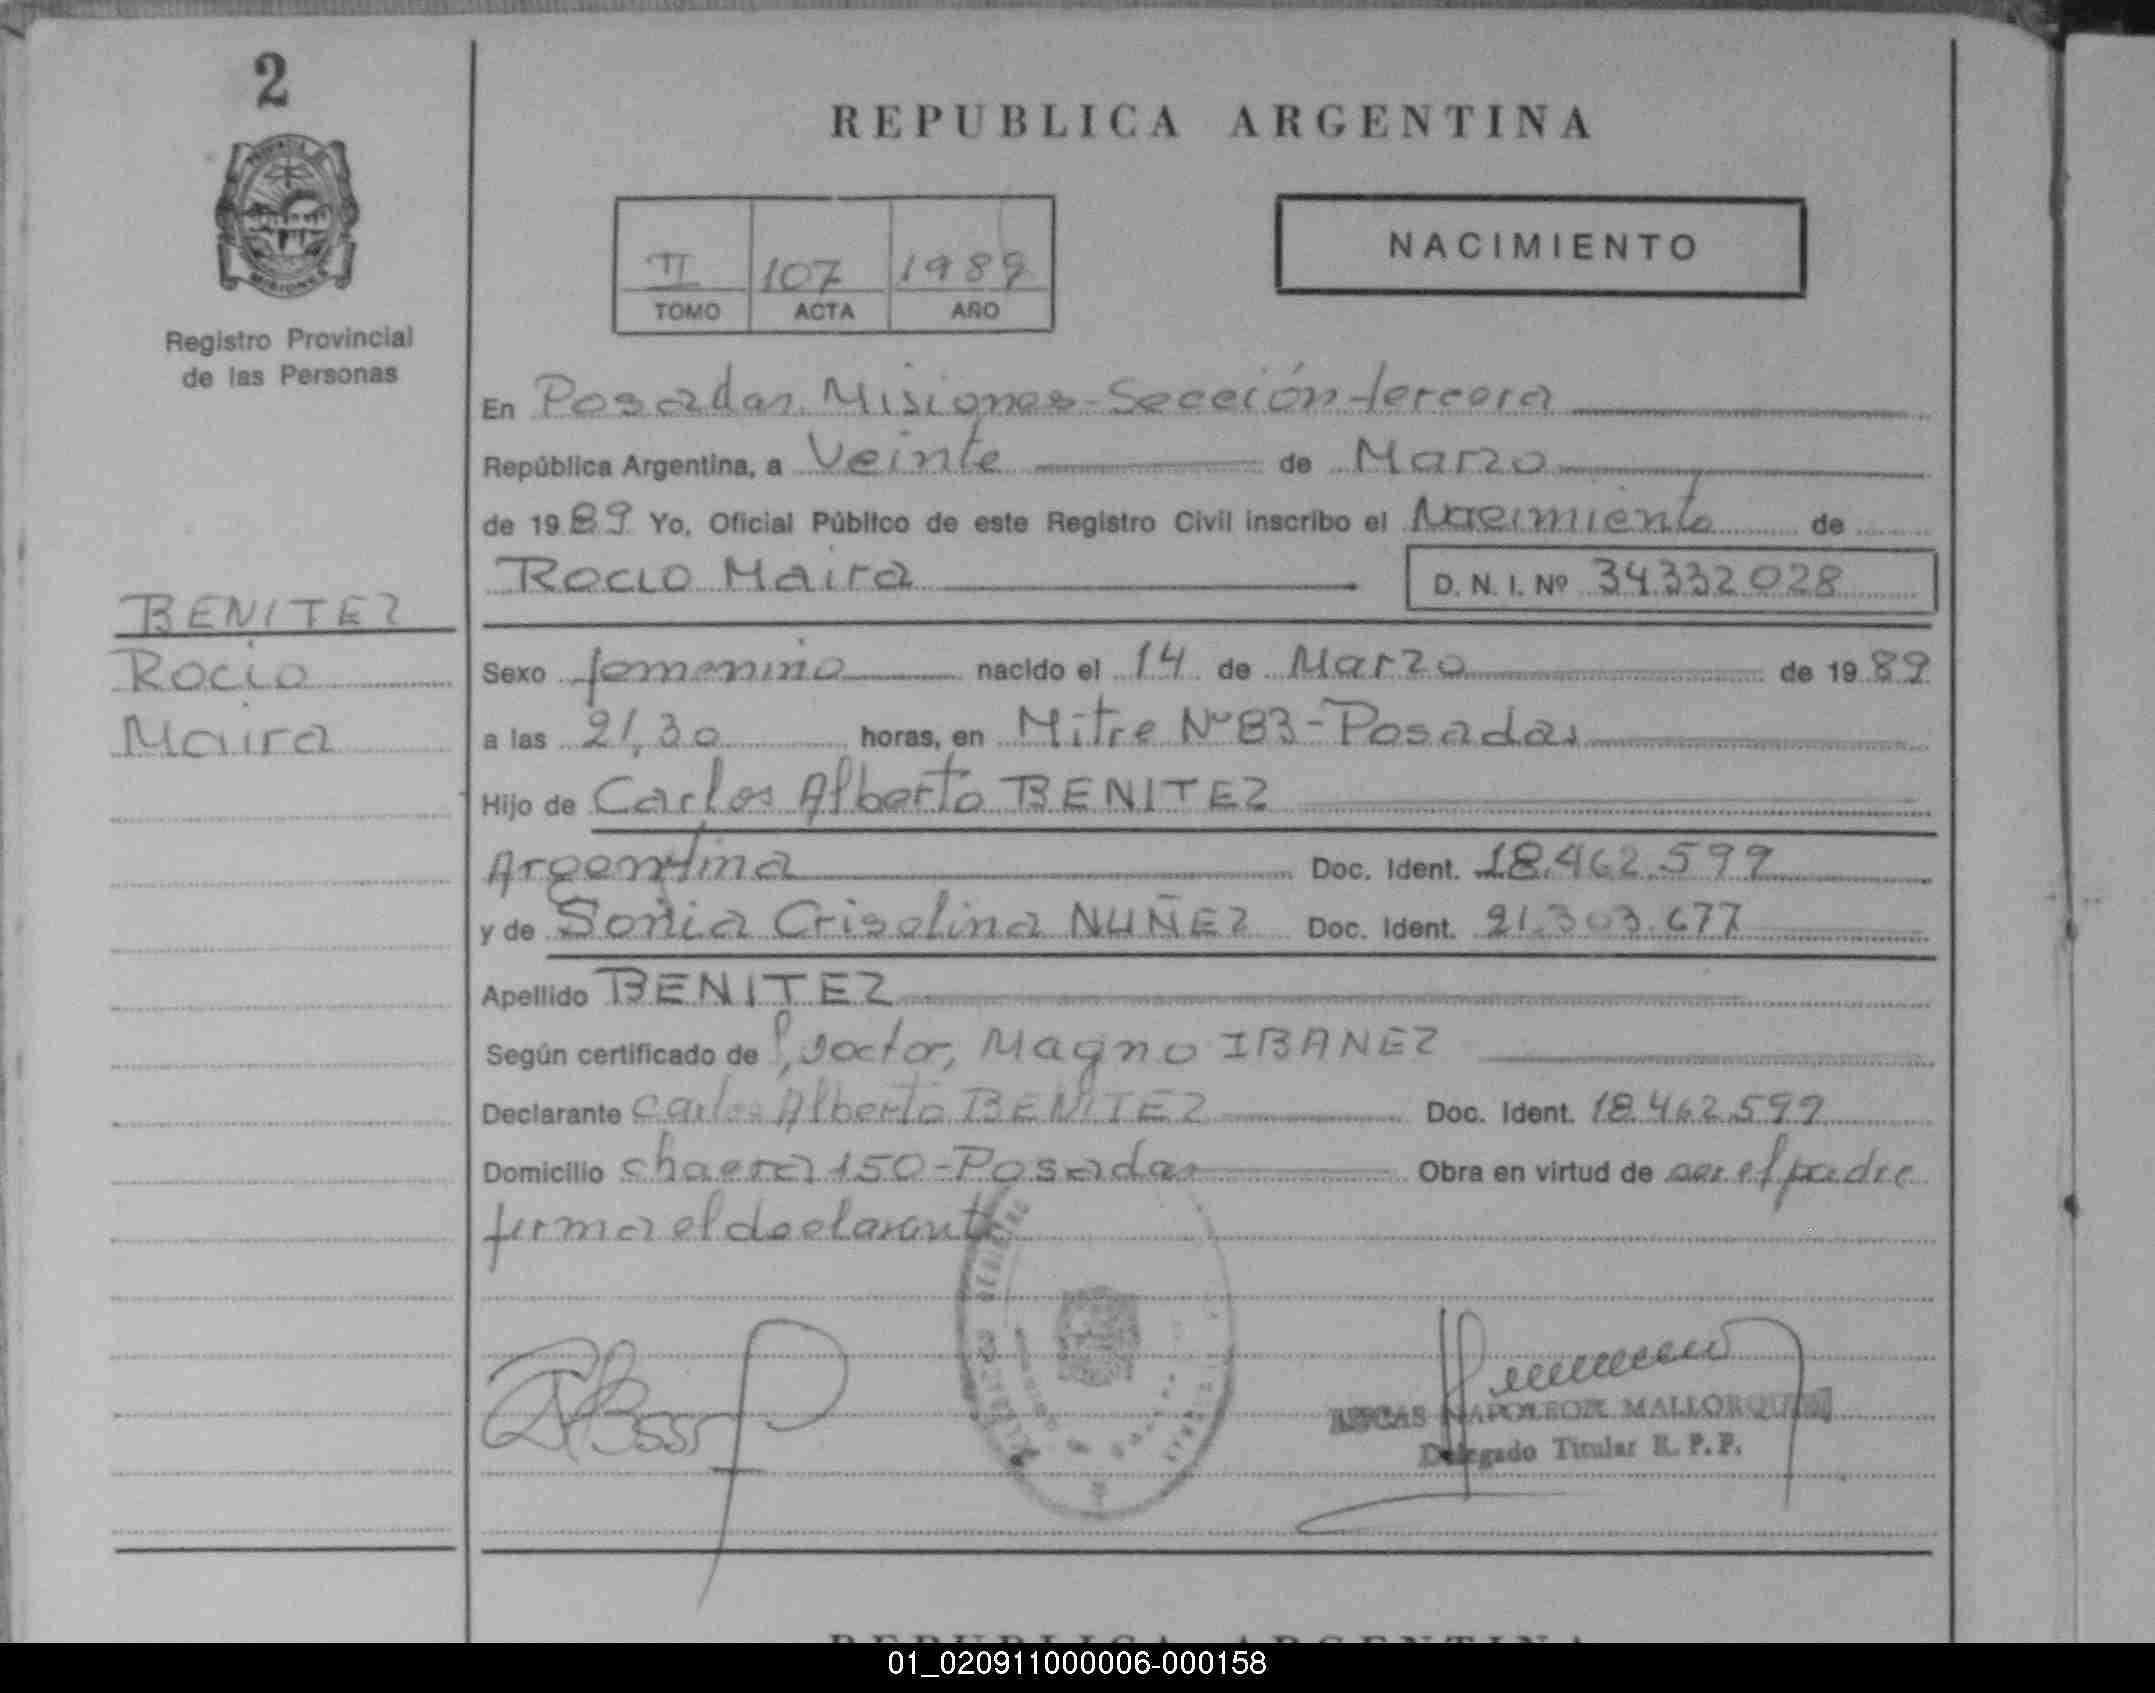 2
PROVINCIA DE
MISIONES
Registro Provincial
de las Personas
BENITEZ
Rocio
Maira
REPUBLICA ARGENTINA
II 107 1989
TOMO ACTA AÑO
NACIMIENTO
En Posadas Misiones-Sección tercera
República Argentina, a Veinte de Marzo
de 1989 Yo, Oficial Público de este Registro Civil inscribo el Nacimiento de
Rocio Maira D. N. I. Nº 34.332.028
Sexo femenino nacido el 14 de Marzo de 1989
a las 21,30 horas, en Mitre Nº 83-Posadas
Hijo de Carlos Alberto BENITEZ
Argentina Doc. Ident. 18.462.599
y de Sonia Crisolina NUÑEZ Doc. Ident. 21.303.677
Apellido BENITEZ
Según certificado de Doctor, Magno IBANEZ
Declarante Carlos Alberto BENITEZ Doc. Ident. 18.462.599
Domicilio chacra 150-Posadas Obra en virtud de ser el padre
firma el declarante
NAPOLEON MALLORQUIN
Delegado Titular R. P. P.
REPUBLICA ARGENTINA
01_020911000006-000158